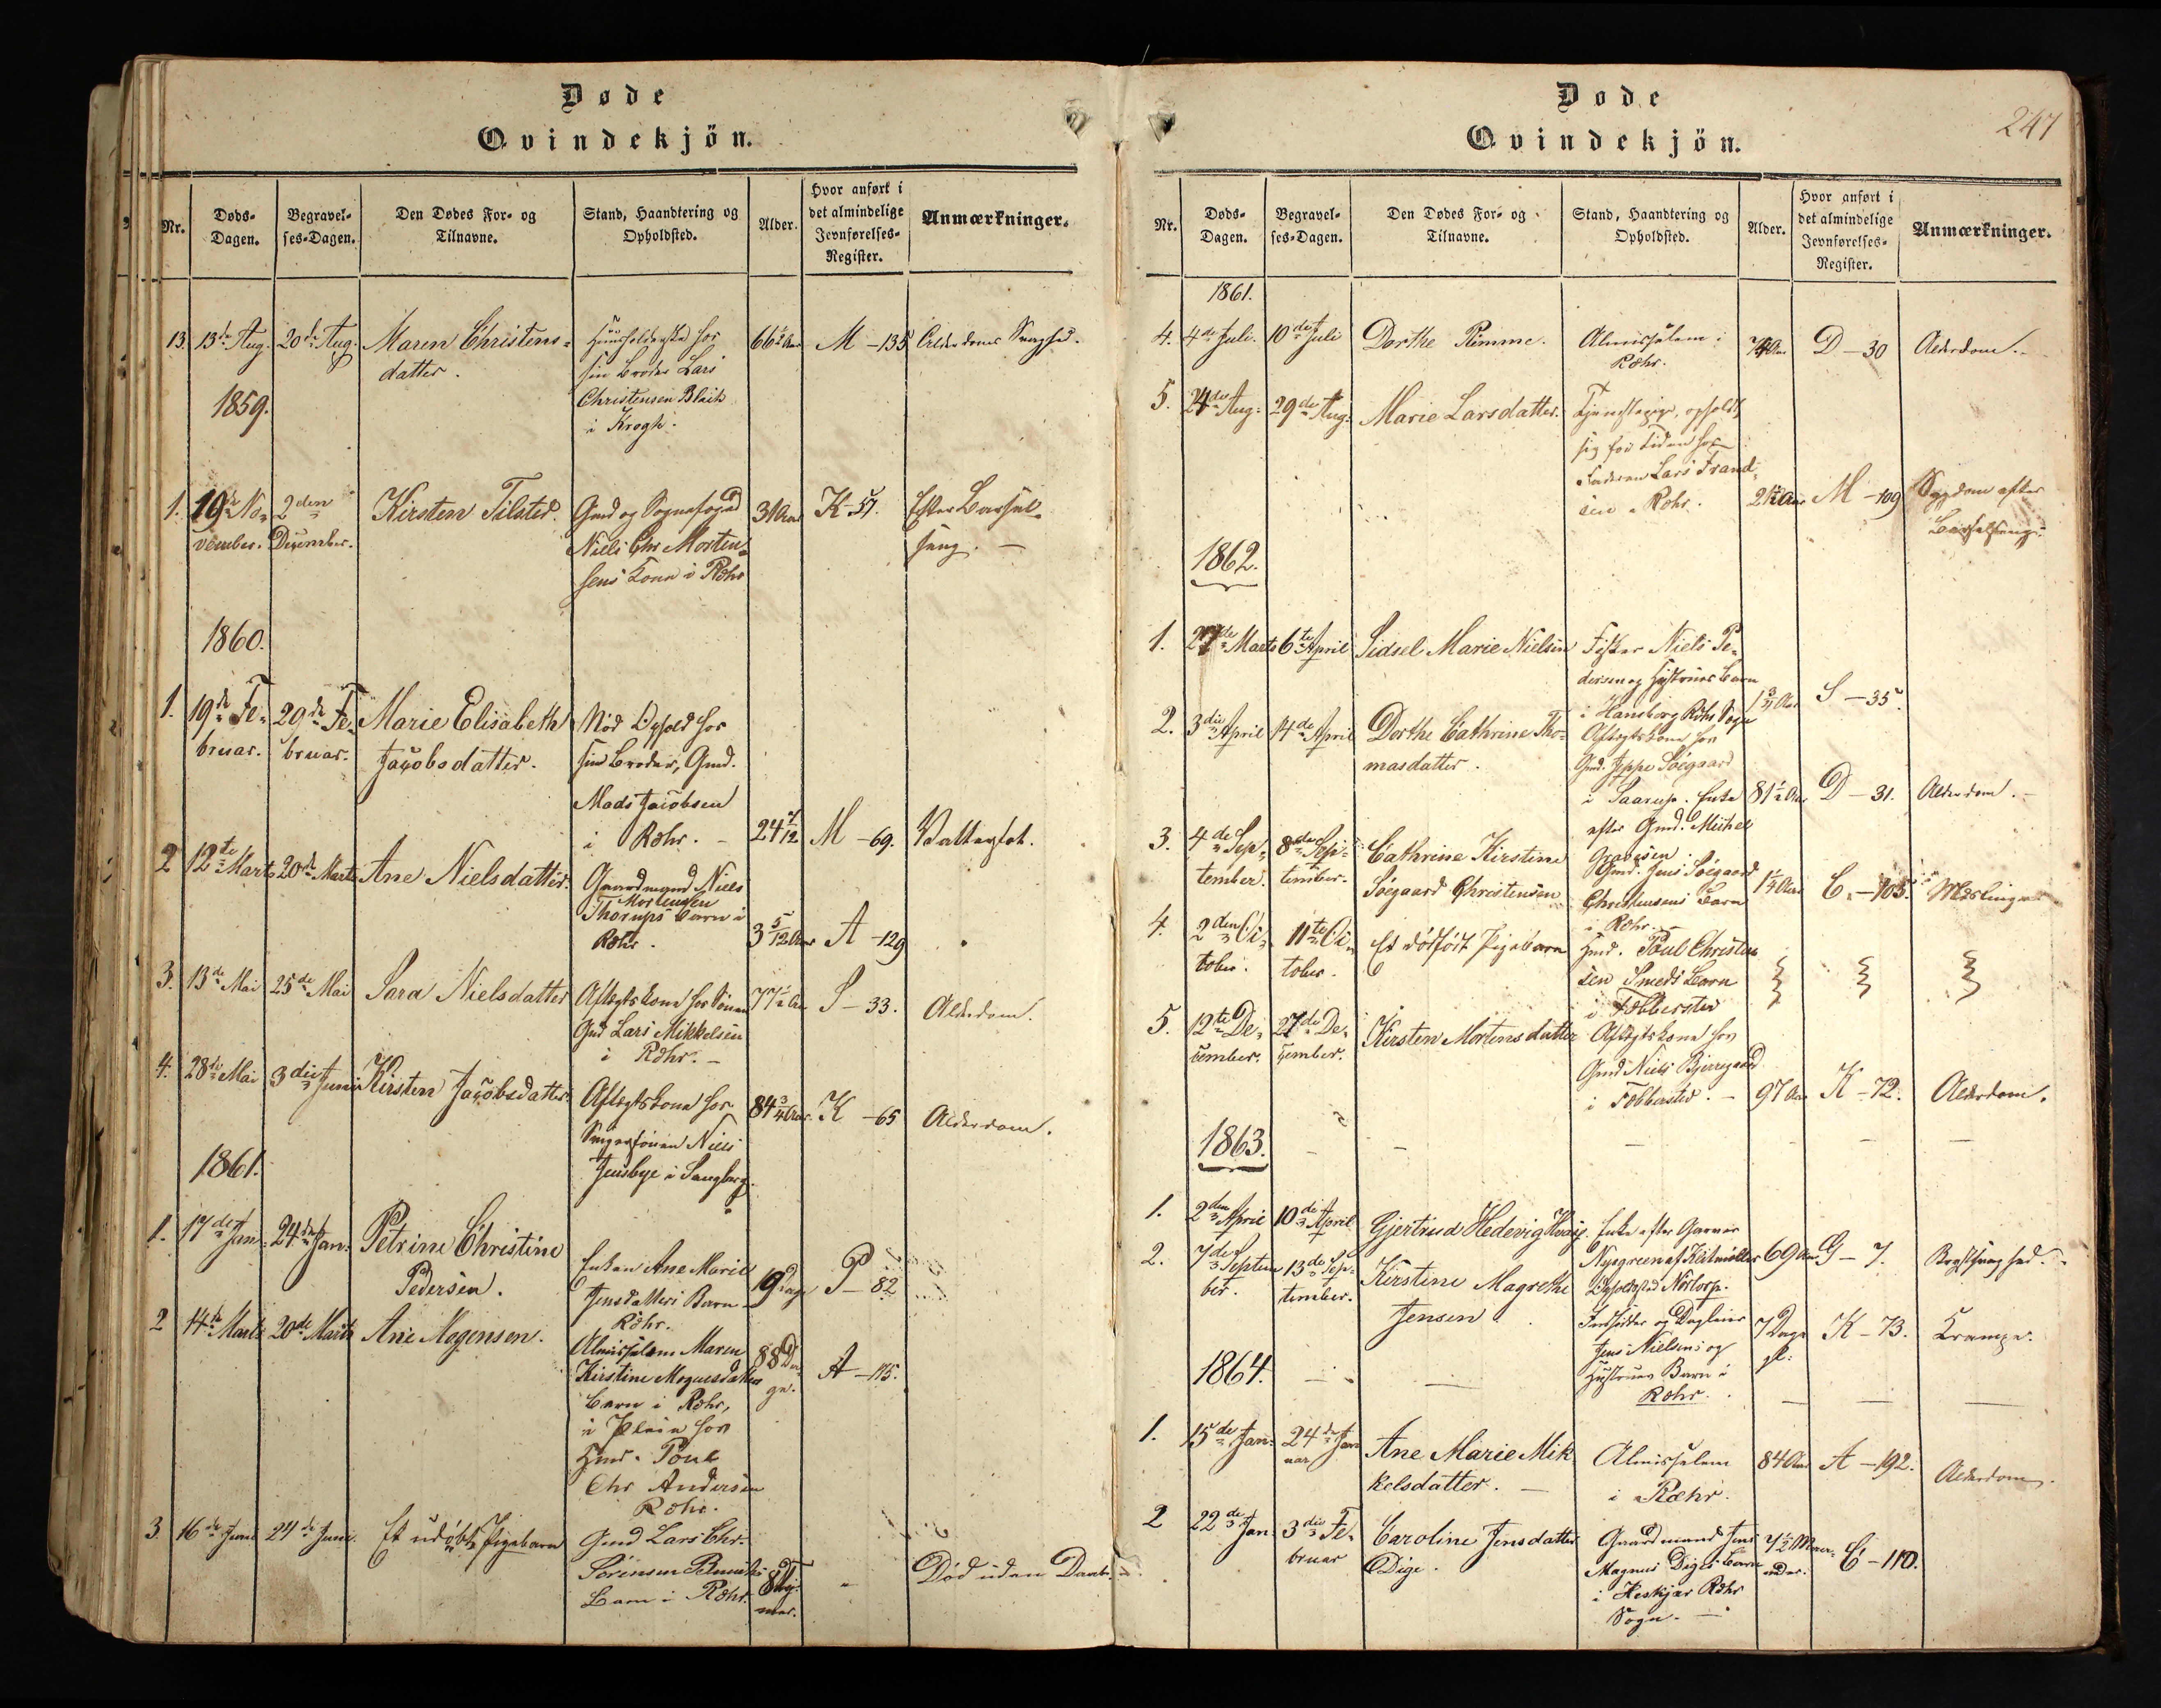 Døde
Qvindekjön.
Nr.
Døds-
Dagen.
Begravel-
ses-Dagen.
Den Dødes For- og
Tilnavne.
Stand, Haandtering og
Opholdsted.
Alder.
Hvor anført i
det almindelige
Jevnførelses-
Register.
Anmærkninger.
13. 13de Aug. 20de Aug. Maren Christens-
datter.
Huusholderske hos
sin Broder Lars
Christensen Bleik
i Krogh.
66½ Aar M - 135 Alderdoms Svaghed.
1859.
1. 19de No-
vember.
2den
December.
Kirsten Tilsted.
Gmd og Sognefoged
Niels Chr Morten-
sens Kone i Ræhr
31 Aar K - 57. Efter Barsel-
seng. -
1860.
1. 19de Fe-
bruar.
29de Fe-
bruar.
Marie Elisabeth
Jacobsdatter.
Mod Ophold hos
sin Broder, Gmd.
Mads Jacobsen
i Ræhr. -
24 M - 69. Vattersot.
2 12te Marts 20de Marts Ane Nielsdatter.
Gaardmand Niels
Mortensen
Thorups Barn i
Ræhr.
3 5/12 Aar A - 129
3. 13de Mai 25de Mai Sara Nielsdatter
Aftægtskone hos Sønnen
Gmd Lars Mikkelsen
i Ræhr. -
77½ Aar S - 33. Alderdom.
4. 28de Mai 3die Juni Kirsten Jacobsdatter
Aftægtskone hos
Svigersønnen Niels
Jensbye i Sangberg.
84¾ Aar. K - 65 Alderdom.
1861.
1. 17de Jan. 24de Jan. Petrine Christine
Pedersen.
Enken Ane Marie
Jensdatters Barn
Ræhr.
19 Dage P - 82
2 14de Marts 20de Marts Ane Mogensen.
Almisselem Maren
Kirstine Mogensdatters
Barn i Ræhr,
i Pleie hos
Hmd. Poul
Chr Andersen
Ræhr.
88 Da-
ge.
A - 175.
3. 16de Juni 24de Juni. Et udøbt Pigebarn
Gmd Lars Chr.
Sørensen
Barn i Ræhr.
8
Død uden Daab.
Døde
Qvindekjön.
247
Nr.
Døds-
Dagen.
Begravel-
ses-Dagen.
Den Dødes For- og
Tilnavne.
Stand, Haandtering og
Opholdsted.
Alder.
Hvor anført i
det almindelige
Jevnførelses-
Register.
Anmærkninger.
1861.
4. 4de Juli. 10de Juli Dorthe Rimme.
Almisselem i
Ræhr.
Aar D - 30 Alderdom. -
5. 24de Aug. 29de Aug. Marie Larsdatter.
Tjenestepige, opholdt
sig for Tiden hos
Faderen Lars Frand-
sen Ræhr.
21½ Aar M - 109 Sygdom efter
Barselseng.
1862.
1. 27de Marts 6te April Sidsel Marie Nielsen
Fisker Niels Pe-
dersen og Hustrues Barn
i Hansborg Ræhr Sogn
1¾ Aar S - 35.
2. 3die April 14de April Dorthe Cathrine Tho-
masdatter.
Aftægtskone hos
Gmd. Jeppe Søegaard
i Saarup. Enke
efter Gmd. Michel
Gravesen
81½ Aar D - 31. Alderdom. -
3. 4de Sep-
tember.
8de Sep-
tember.
Cathrine Kirstine
Søegaard Christensen
Gmd. Jens Søegaard
Christensens Barn
i Ræhr.
1¼ Aar C. - 105. Mæslinger
4. 2den Oc-
tober.
11te Oc-
tober.
Et dødfødt Pigebarn
Hmd. Poul Christen
sen Smeds Barn
i Febbersted
5. 12te De-
cember.
27de De-
cember.
Kirsten Mortensdatter
Aftægtskone hos
Gmd Niels Bjerregaard
i Febbersted. -
97 Aar K - 72. Alderdom.
1863.
1. 2den April 10de April Gjertrud Hedevig Kraij.
Enke efter Garver
Nysgreen af Klitmøller
Opholdsted Nørtorp.
69 Aar G - 7. Brystsvaghed. -
2. 7de Septem
ber.
13de Sep-
tember.
Kirstine Magrethe
Jensen
Indsidder og Dagleier
Jens Nielsens og
Hustrues Barn i
Ræhr.
7 Dage
gl.
K - 73. Krampe.
1864.
1. 15de Jan-
24de Jan
uar
Ane Marie Mik
kelsdatter. -
Almisselem
i Ræhr.
84 Aar A - 192. Alderdom.
2 22de Jan. 3die Fe-
bruar
Caroline Jensdatter
Dige.
Gaardmand Jens
Magnus Diges Barn
i Keskjær Ræhr
Sogn. -
7½ Maa-
neder.
C - 110.